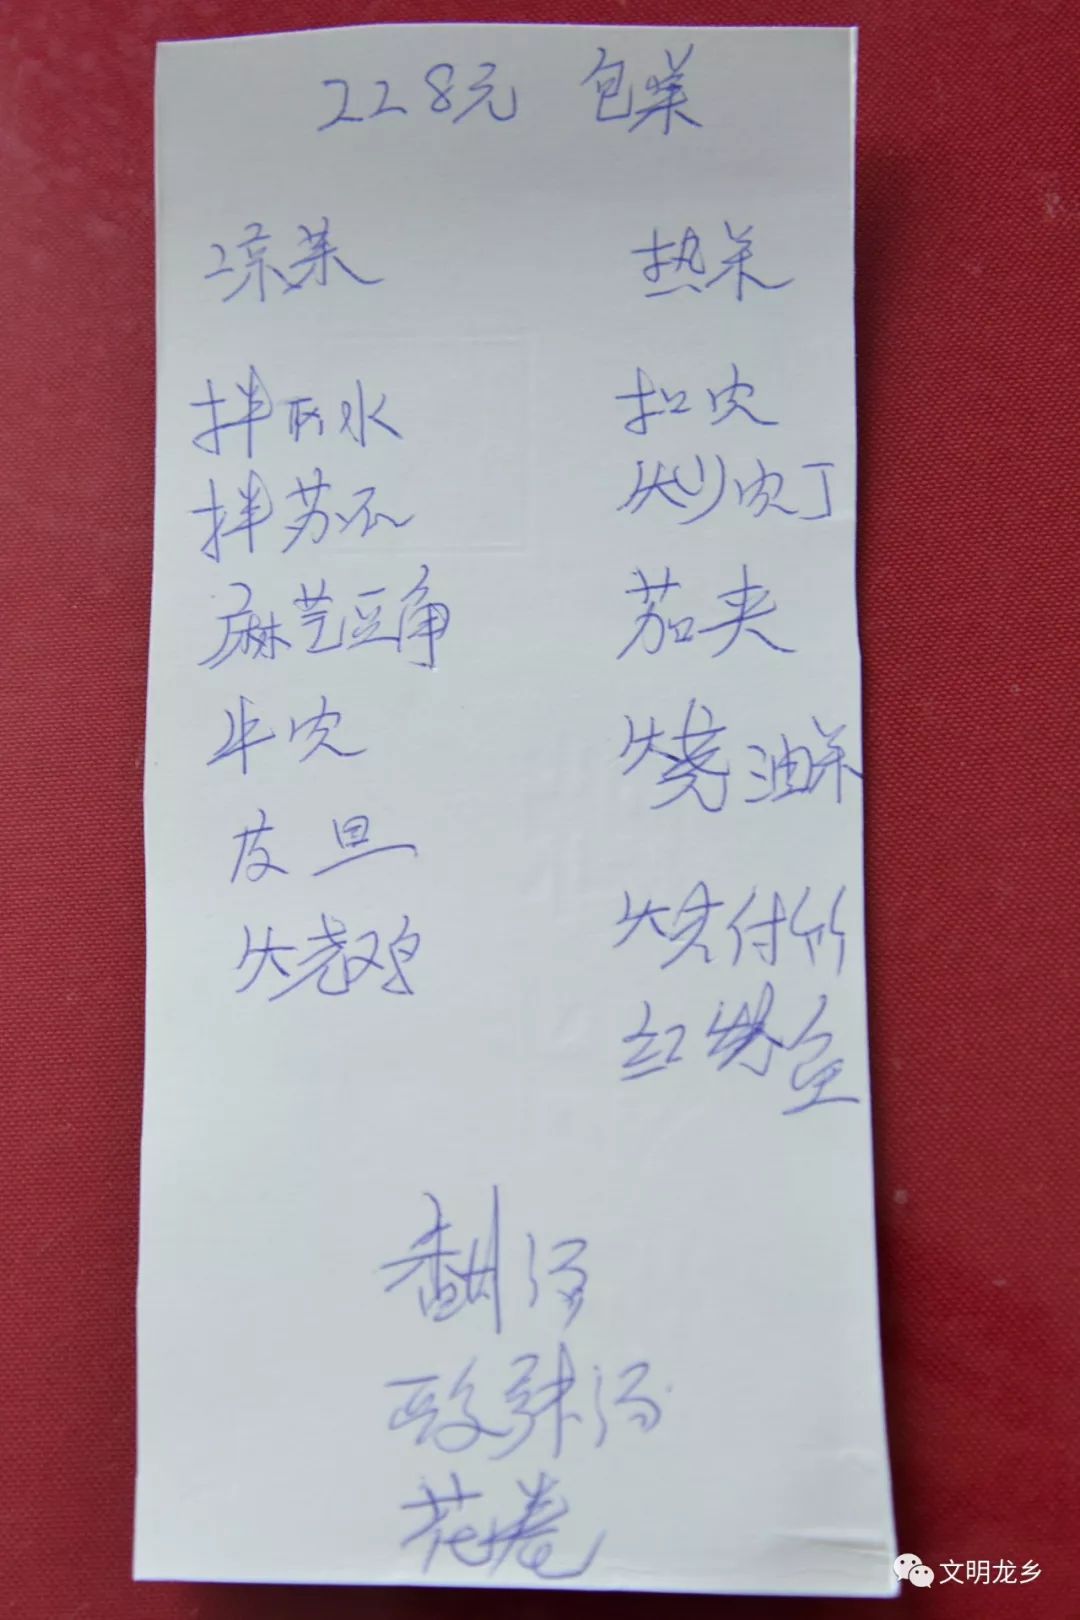 228元 包菜
凉菜
拌西水
拌苏不
麻芝豆角
牛肉
皮旦
烧鸡
热菜
扣肉
炒肉丁
茄夹
烧油菜
烧付竹
红烧鱼
酸辣汤
花卷
文明龙乡